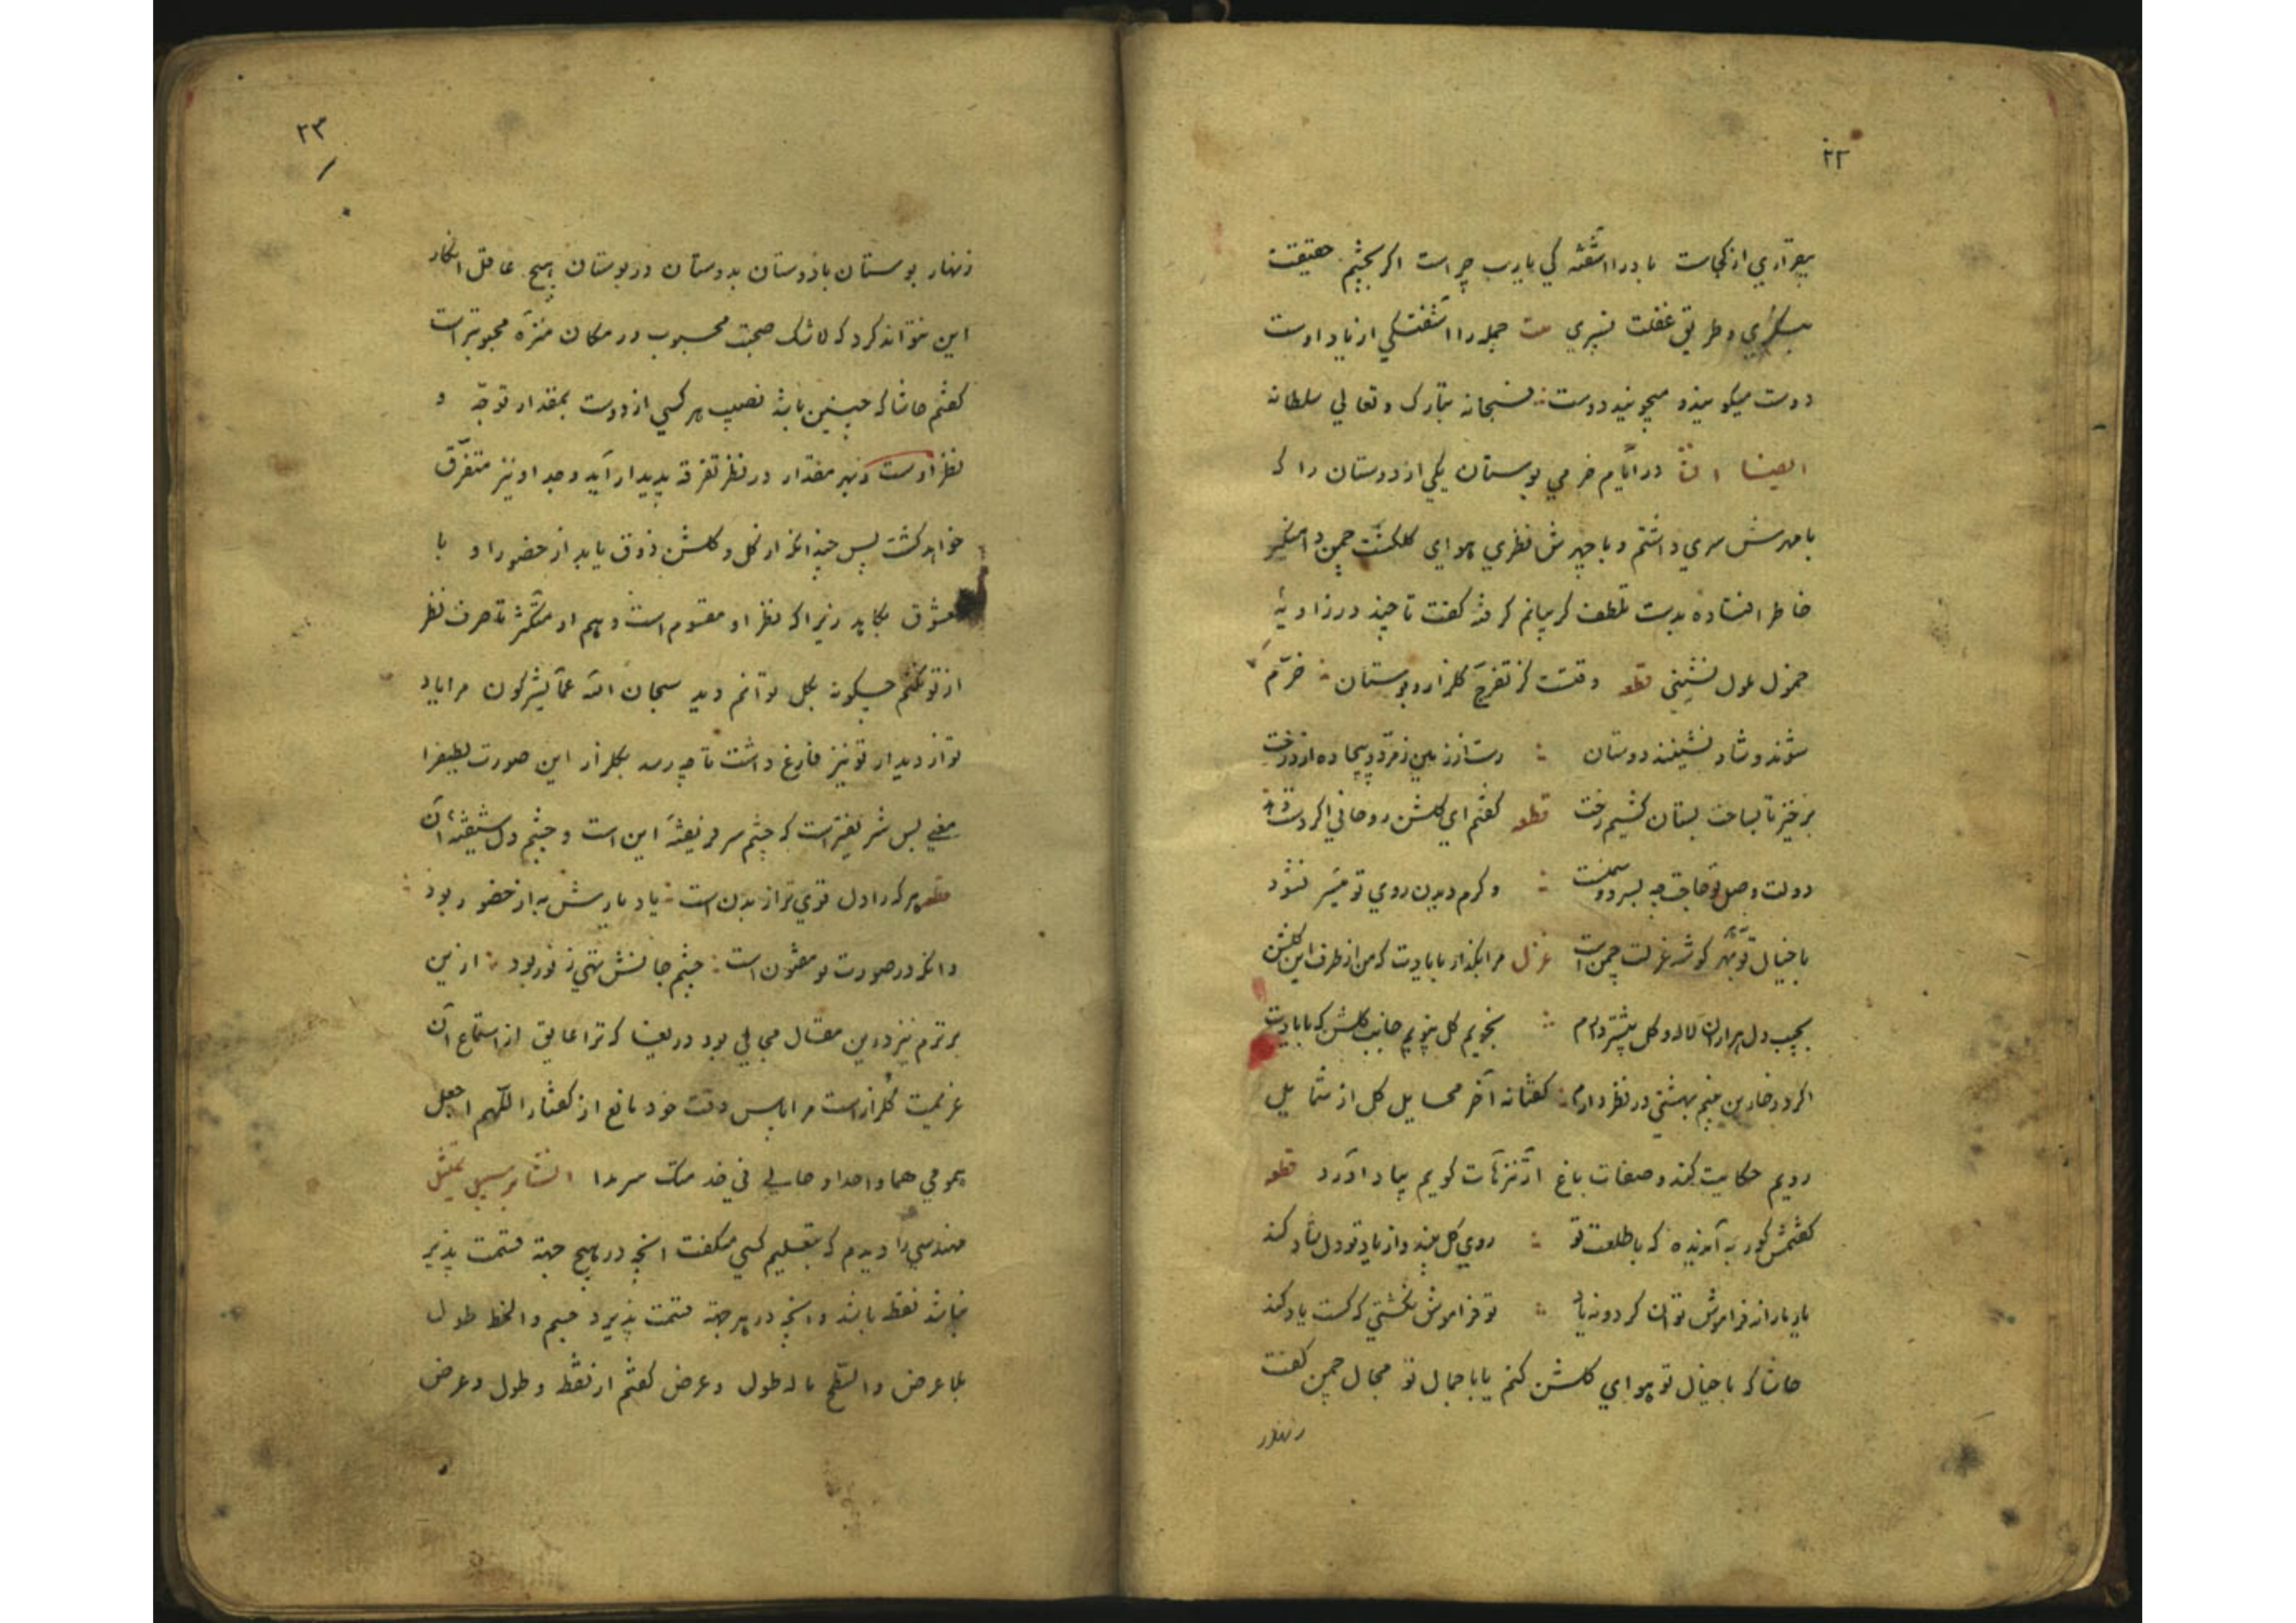 ۲۲
بیقراری از کجاست باد را آشفته کی یارب چراست اگر بچشم حقیقت
بنگری و طریق غفلت نسپری بیت جمله را آشفتگی از یاد اوست
دوست میگویند و میجویند دوست فسبحانه تبارک و تعالی سلطانه
ایضا در ایام خرمی بوستان یکی از دوستان را که
با مهرش سری داشتم و با چهرش نظری هوای گلگشت چمن دامنگیر
خاطر افتاده بدست تلطف گریبانم گرفته گفت تا چند در زاویهٔ
خمول ملول نشینی قطعه وقتست کز تفرج گلزار و بوستان خرم
شوند و شاد نشینند دوستان رست از زمین زمرد و بیجاده از درخت
برخیز تا بساحت بستان کشیم رخت قطعه گفتم ای گلشن روحانی اگر دست دهد
دولت وصل تو حاجت چه بسرو و سمنست وگرم دیدن روی تو میسر نشود
با خیال تو بهر گوشه عزلت چمن است غزل مرا بگذار با یادت که من از طرف این گلشن
بجیب دل هزاران لاله و گل بیشتر دارم نجویم گل نپویم جانب گلشن که با یادت
اگر در خار بن بینم بهشتی در نظر دارم گفتا نه آخر مخایل گل از شمایل
رویم حکایت کند و صفات باغ از نزهات کویم بیاد آورد قطعه
گفتمش کور به آن دیده که با طلعت تو روی گل بیند و از یاد تو دل شاد کند
یار یارانه فراموش توان کرد و نه یار تو فراموش نگشتی که کست یاد کند
حاشا که با خیال تو هوای گلشن کنم یا با جمال تو مجال چمن گفت
زنهار
۲۳
زنهار بوستان با دوستان به و بستان در بوستان هیچ عاقل انکار
این نتواند کرد که لاشک صحبت محبوب در مکان منزه محبوبتر است
گفتم حاشا که چنین باشد نصیب هر کسی از دوست بمقدار توجه و
نظر اوست و بهر مقدار در نظر تفرقه پدیدار آید وجد او نیز متفرق
خواهد گشت پس چندانکه از گل و گلشن ذوق یابد از حضور او با
معشوق بکاهد زیرا که نظر او مقسوم است و هم او متکثر تا صرف نظر
از تو نکنم چگونه بگل توانم دید سبحان الله عما یشرکون مرا یاد
تو از دیدار تو نیز فارغ داشت تا چه رسد بگلزار این صورت لطیفرا
معنی بس شریفتر است که چشم سر فریفتهٔ این است و چشم دل شیفتهٔ آن
قطعه هر که را دل قوی تر از بدن است یاد یارش به از حضور بود
وانکه در صورت تو مفتون است چشم جانش تهی ز نور بود از این
برترم نیز درین مقال مجالی بود دریغا که ترا عایق از استماع آن
عزیمت گلزار است مرا پاس وقت خود مانع از گفتار اللهم اجعل
همومی هما واحدا و حالی فی خدمتک سرمدا ایضا بر سبیل تمثیل
مهندسی را دیدم که بتعلیم کسی میگفت آنچه در هیچ جهة قسمت پذیر
نباشد نقطه باشد و آنچه در هر جهة قسمت پذیرد جسم و الخط طول
بلا عرض و السطح ما له طول و عرض گفتم از نقطه و طول و عرض